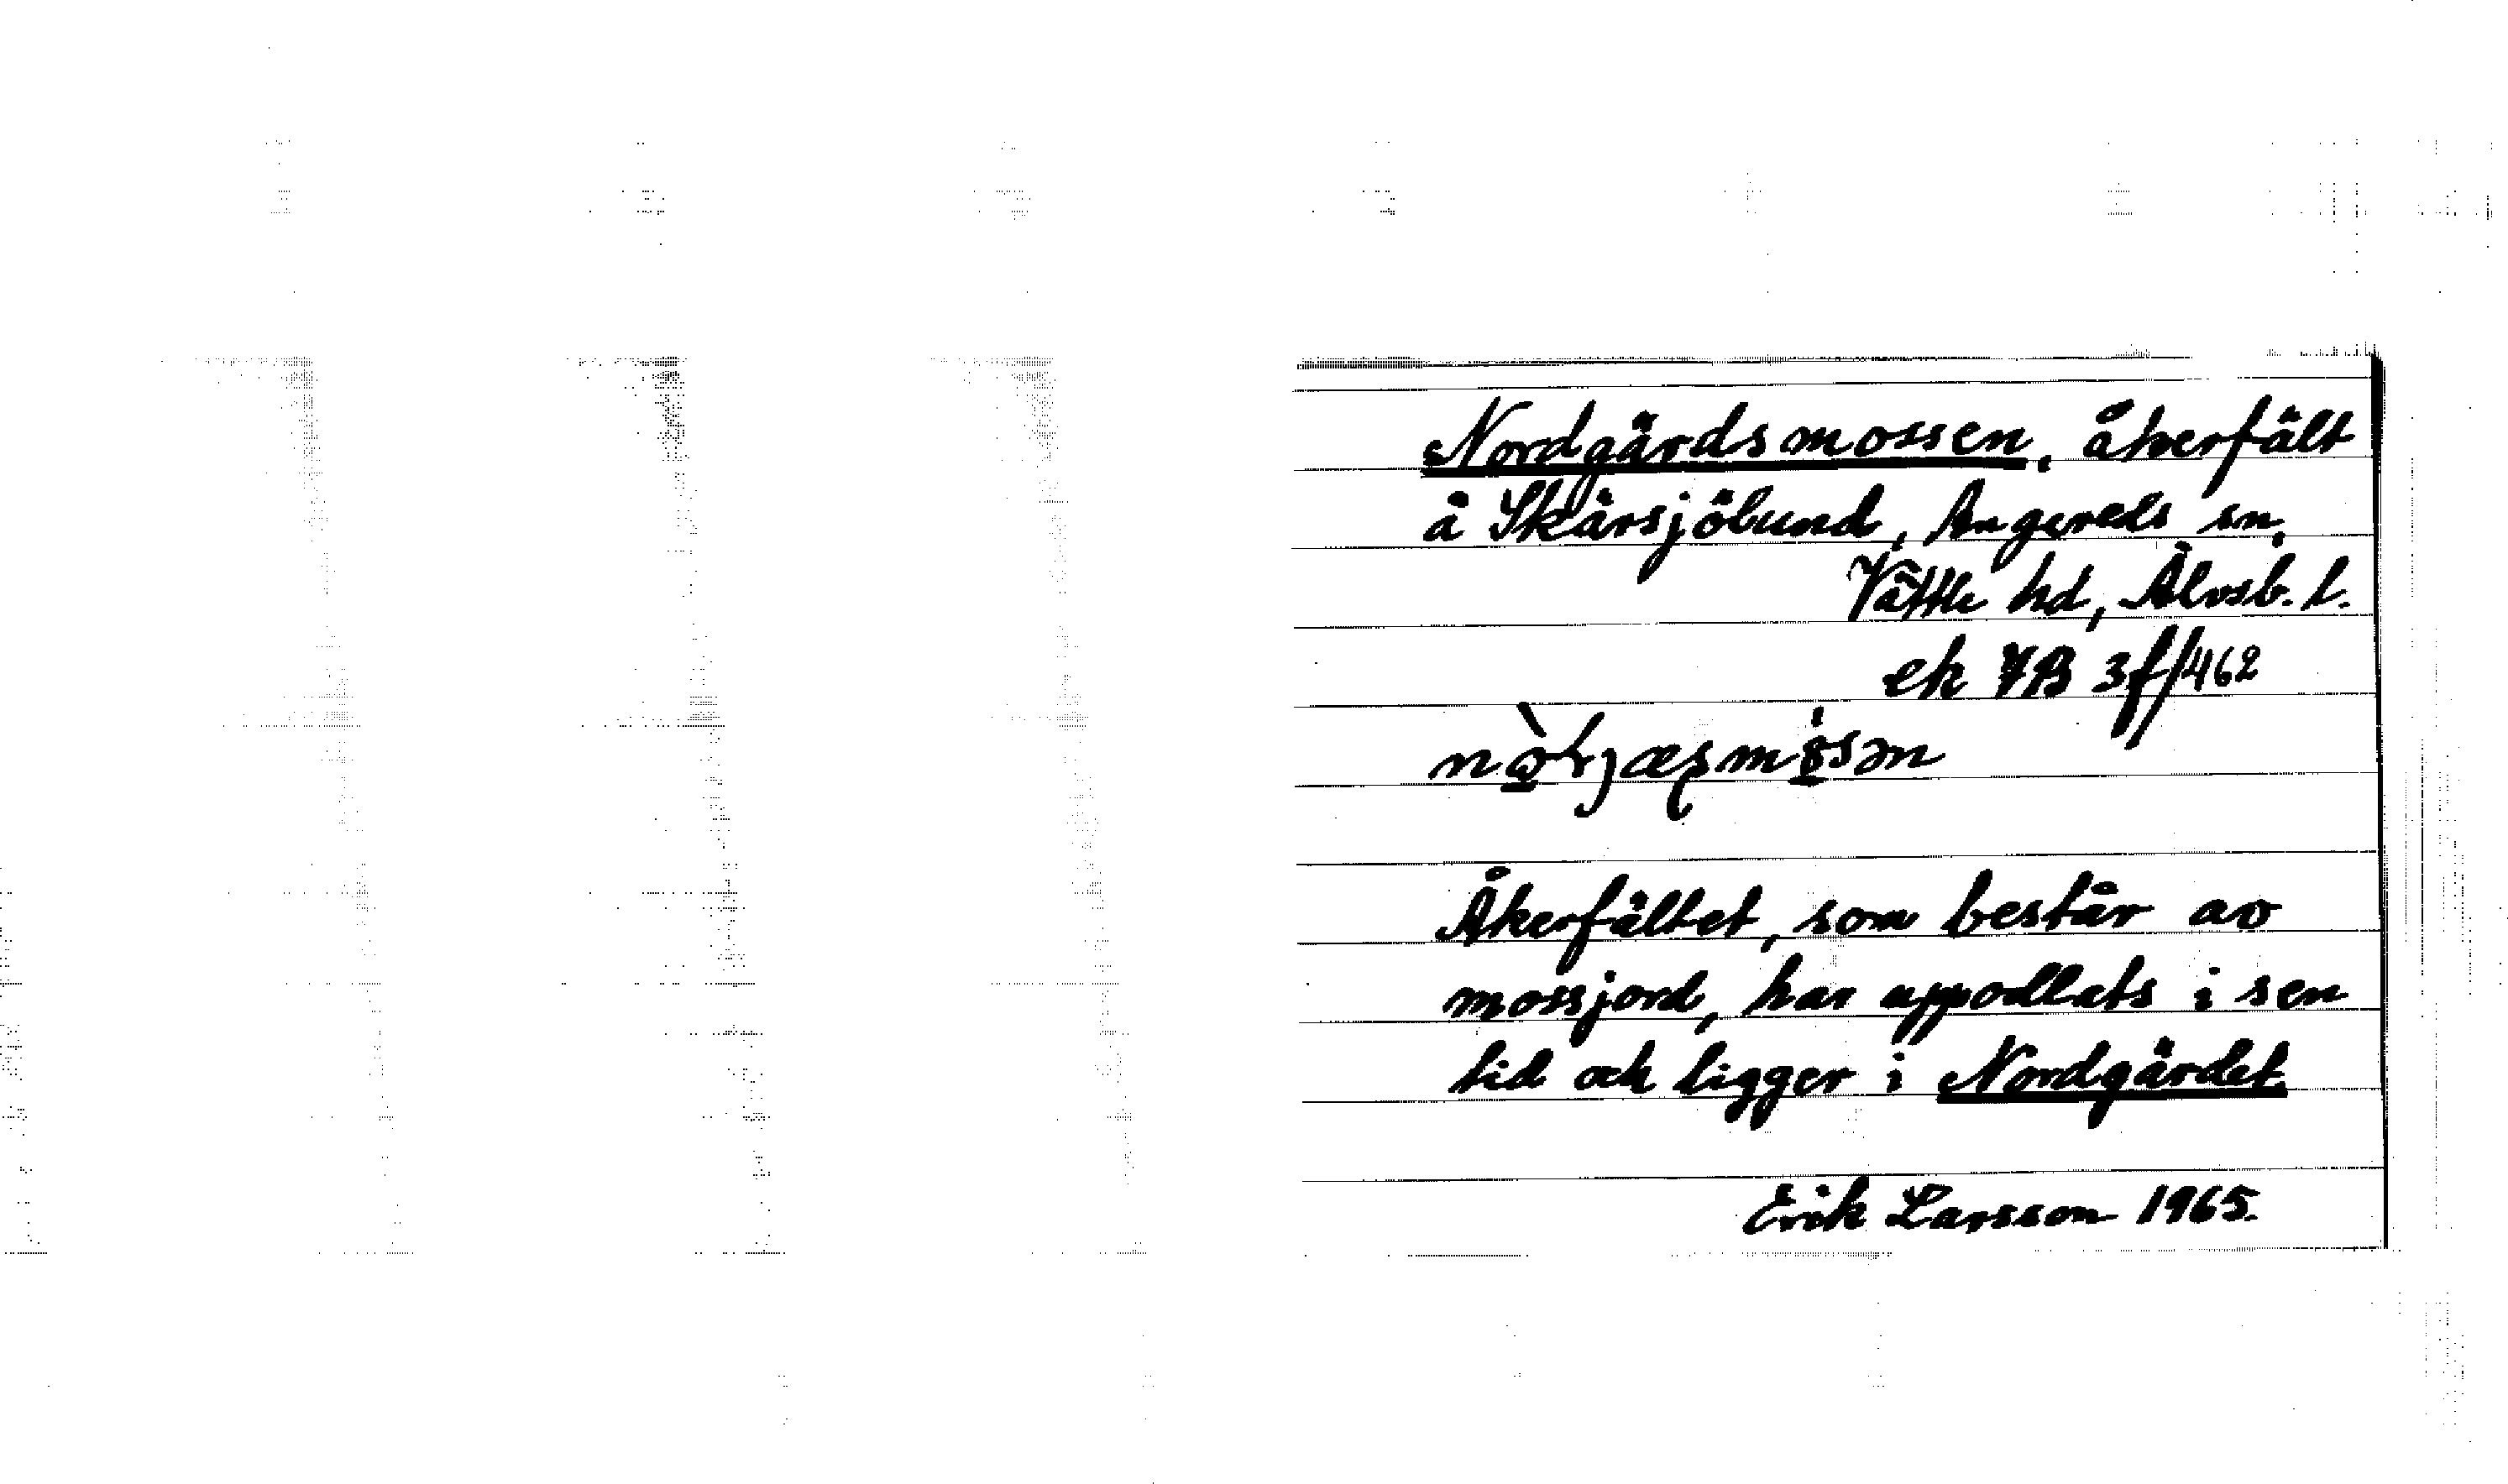 Nordgärdsmossen, åkerfält
å Skårsjölund, Angereds sn,
Vättle hd, Älvsb. l.
ek 7B 3f/462
Åkerfältet, som består av
mossjord, har uppodlats i sen
tid och ligger i Nordgärdet.
Erik Larsson 1965.